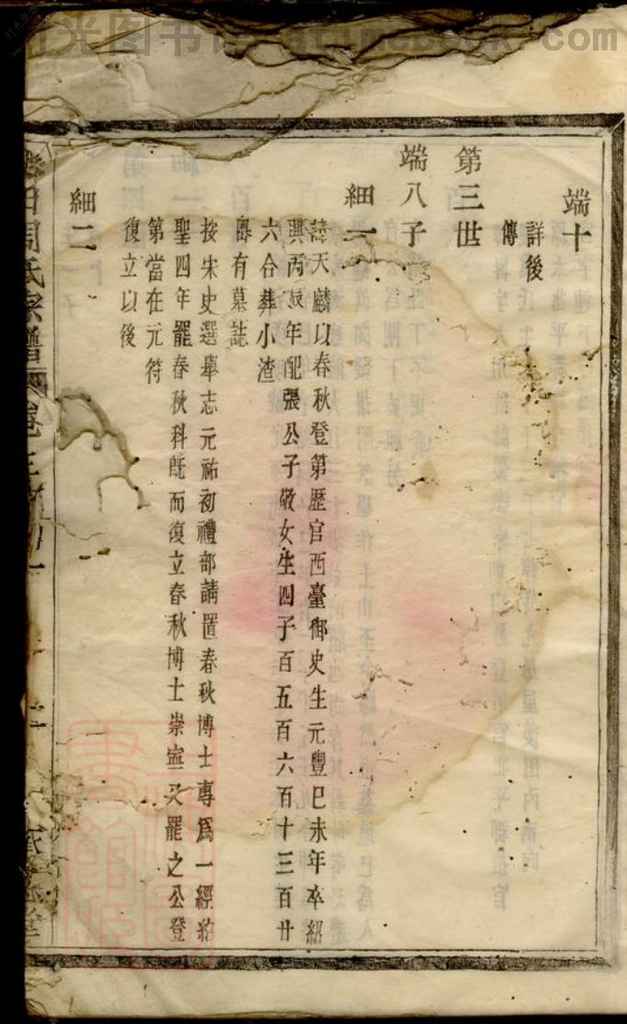 端十
詳後
傳
第三世
端八子
細一
諱天麟以春秋登第歷官西臺御史生元豐己未年卒紹
興丙辰年配張公子敬女生四子百五百六百十三百廿
六合葬小渣
存有墓誌
按宋史選舉志元祐初禮部請置春秋博士專爲一經紹
聖四年罷春秋科旣而復立春秋博士崇寧又罷之公登
第當在元符
復立以後
細二
周氏宗譜 卷三